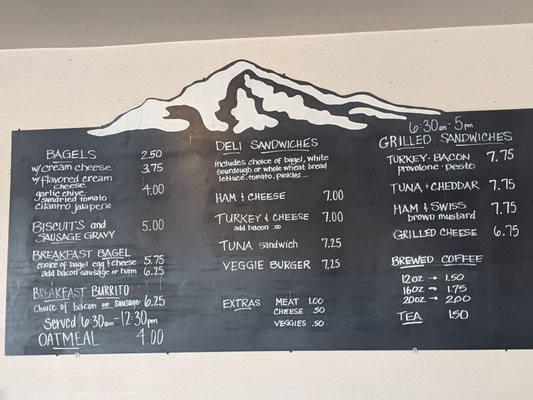 BAGELS 2.50
w/cream cheese 3.75
w/flavored cream cheese 4.00
garlic chive,
sundried tomato
cilantro jalapeño
BISCUITS and
SAUSAGE GRAVY 5.00
BREAKFAST BAGEL
choice of bagel egg & cheese 5.75
add bacon sausage or ham 6.25
BREAKFAST BURRITO
Choice of bacon or sausage 6.25
Served 6:30am-12:30pm
OATMEAL 4.00
DELI SANDWICHES
includes choice of bagel, white
sourdough or whole wheat bread
lettuce, tomato, pickles...
HAM & CHEESE 7.00
TURKEY & CHEESE 7.00
add bacon .50
TUNA Sandwich 7.25
VEGGIE BURGER 7.25
EXTRAS MEAT 1.00
CHEESE .50
VEGGIES .50
6:30am-5pm
GRILLED SANDWICHES
TURKEY-BACON 7.75
provolone-pesto
TUNA & CHEDDAR 7.75
HAM & SWISS 7.75
brown mustard
GRILLED CHEESE 6.75
BREWED COFFEE
12oz → 1.50
16oz → 1.75
20oz → 2.00
TEA 1.50